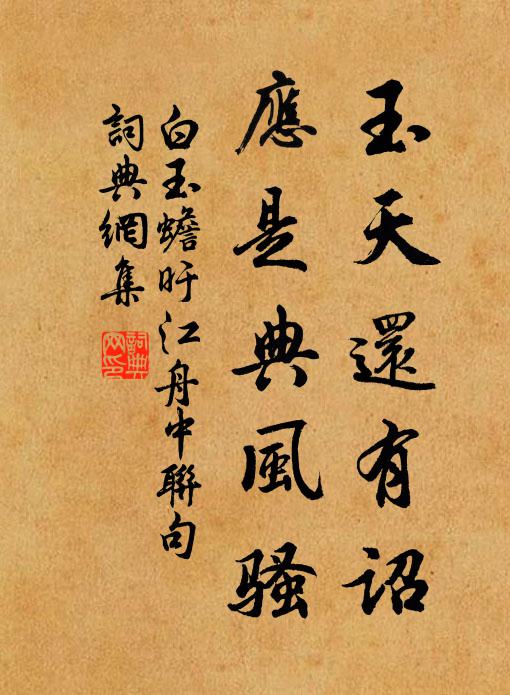 玉天還有詔
應是典風騷
白玉蟾旰江舟中聯句
詞典網集
詞典網印